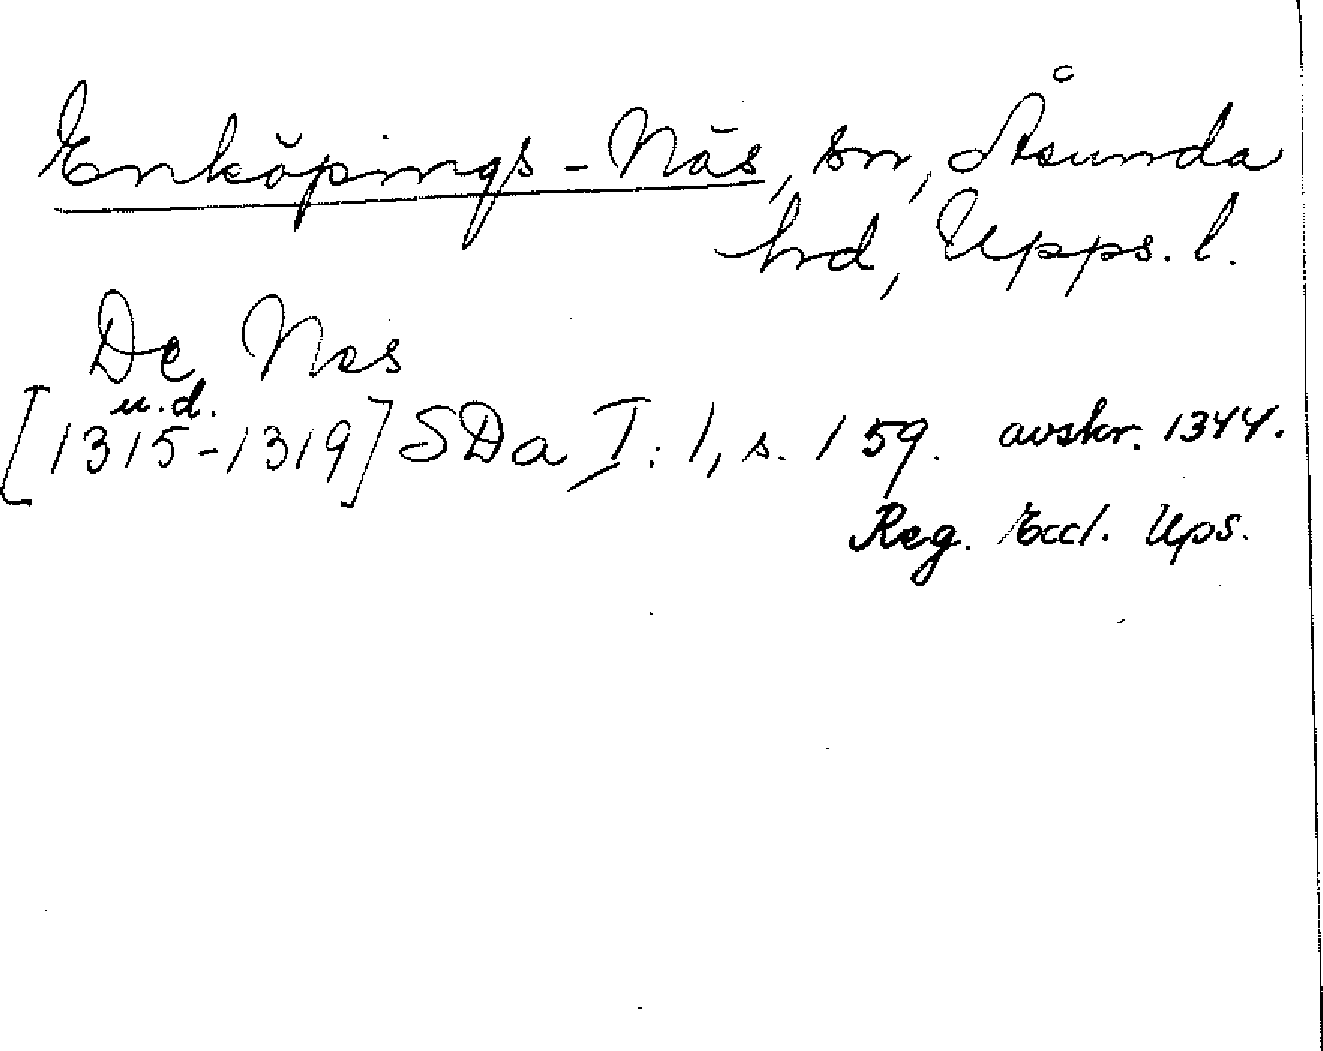 Enköpings-Näs, sn, Åsunda
hrd, Upps. l.
De Nes
u.d.
[1315-1319] SDa I:1, s. 159. avskr. 1344.
Reg. Eccl. Ups.